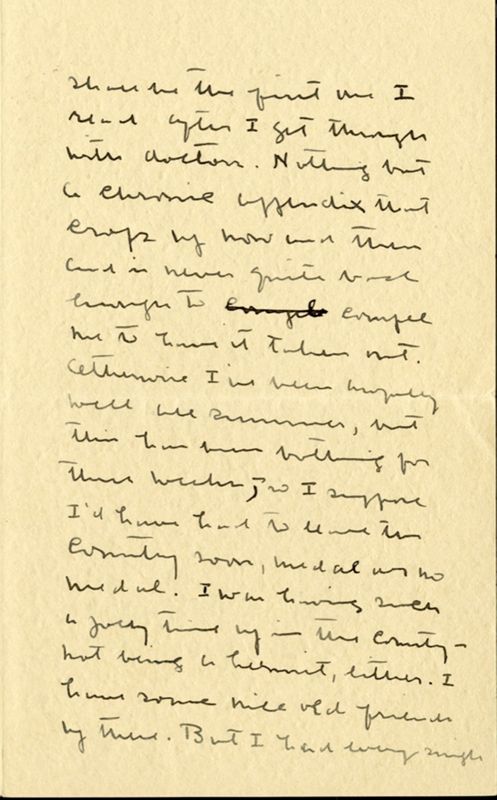 shall be the first one I
read after I get through
with doctors. Nothing but
a chronic appendix that
crops up now and then
and is never quite bad
enough to compel
me to have it taken out.
Otherwise I've been
well all summer, but
this has been bothing for
three weeks, so I suppose
I'd have had to leave the
country soon, medal or no
medal. I was having such
a jolly time up in the country—
not being a hermit, either. I
have some nice old friends
up there. But I had every single